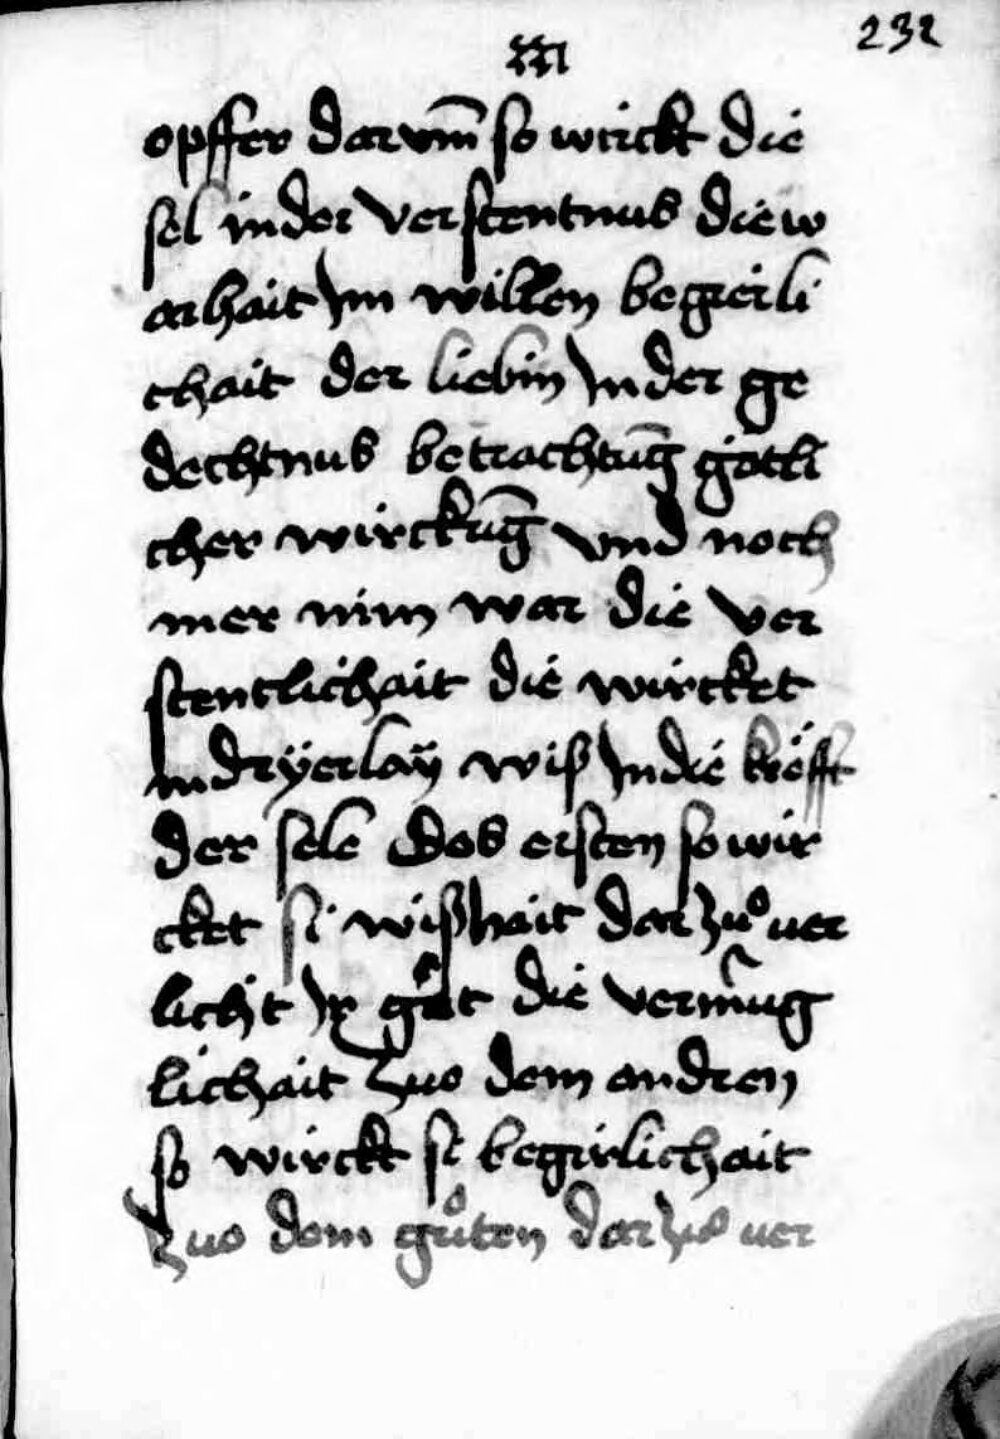 232
xxi
opffer darvm̄ so wirckt die
sel in der verstentnus die w
arhait Jm willen begierli
chait der liebin Jn der ge
dechtnus betrachtūg götli
cher wirckūg vnd noch
mer nim war die ver
stentlichait die wircket
in dryerlaÿ wiß Jn die kröfft
der sele Des ersten so wir
cket si wißhait dar zuͦ uer
licht Jr got die vermūg
lichait Zuo dem andren
so wirckt si begirlichait
Zuo dem guͦten dar zuͦ uer